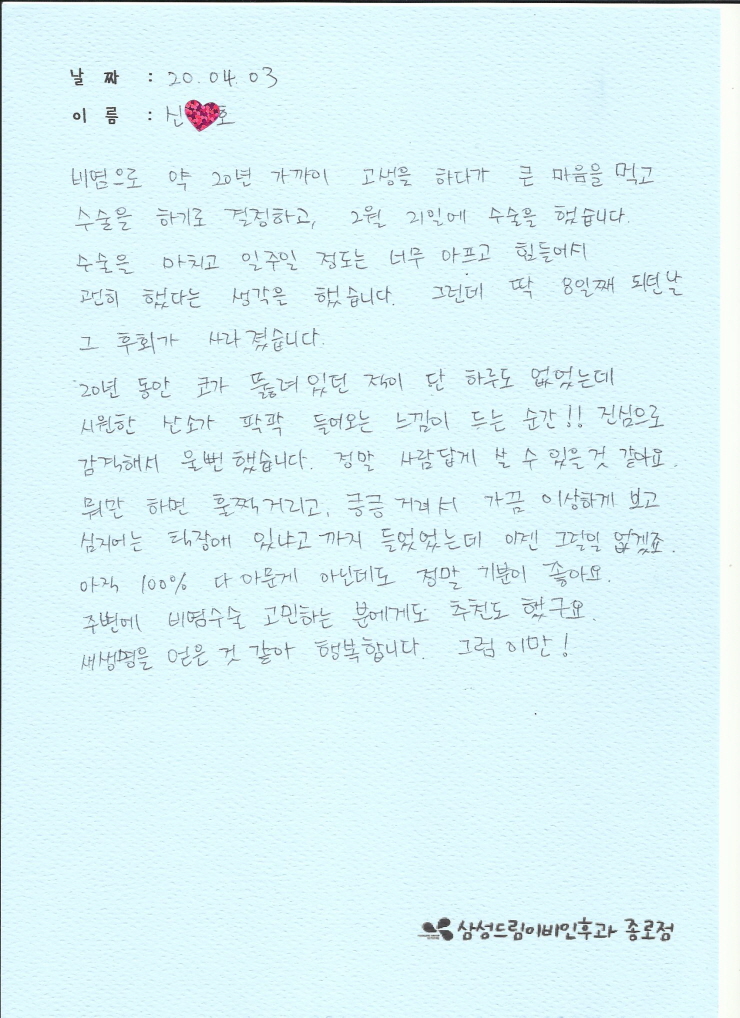 날 짜 : 20.04.03
이 름 : 신 호
비염으로 약 20년 가까이 고생을 하다가 큰 마음을 먹고
수술을 하기로 결정하고, 2월 21일에 수술을 했습니다.
수술을 마치고 일주일 정도는 너무 아프고 힘들어서
괜히 했다는 생각을 했습니다. 그런데 딱 8일째 되던날
그 후회가 사라졌습니다.
20년 동안 코가 뚫려있던 적이 단 하루도 없었는데
시원한 산소가 팍팍 들어오는 느낌이 드는 순간!! 진심으로
감격해서 울뻔했습니다. 정말 사람답게 살 수 있을것 같아요.
뭐만 하면 훌쩍거리고, 킁킁거려서 가끔 이상하게 보고
심지어는 틱장애 있냐고까지 들었었는데 이젠 그럴일 없겠죠.
아직 100% 다 아문게 아닌데도 정말 기분이 좋아요.
주변에 비염수술 고민하는 분에게도 추천도 했구요.
새생명을 얻은 것 같아 행복합니다. 그럼 이만!
삼성드림이비인후과 종로점